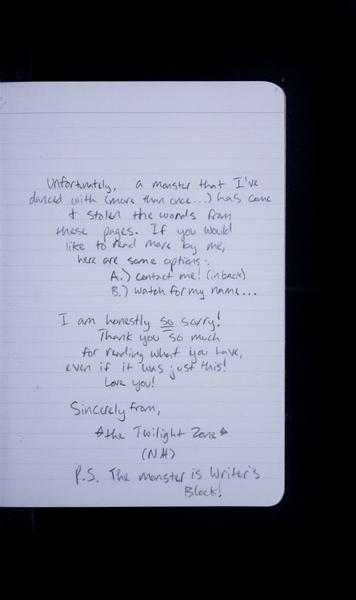 Unfortunately, a monster that I've
danced with (more than once...) has come
& stolen the words from
these pages. If you would
like to read more by me,
here are some options:
A.) contact me! (in back)
B.) watch for my name...
I am honestly so sorry!
Thank you so much
for reading what you have,
even if it was just this!
Love you!
Sincerely from,
☆the Twilight Zone☆
(NH)
P.S. The monster is Writer's
Block!